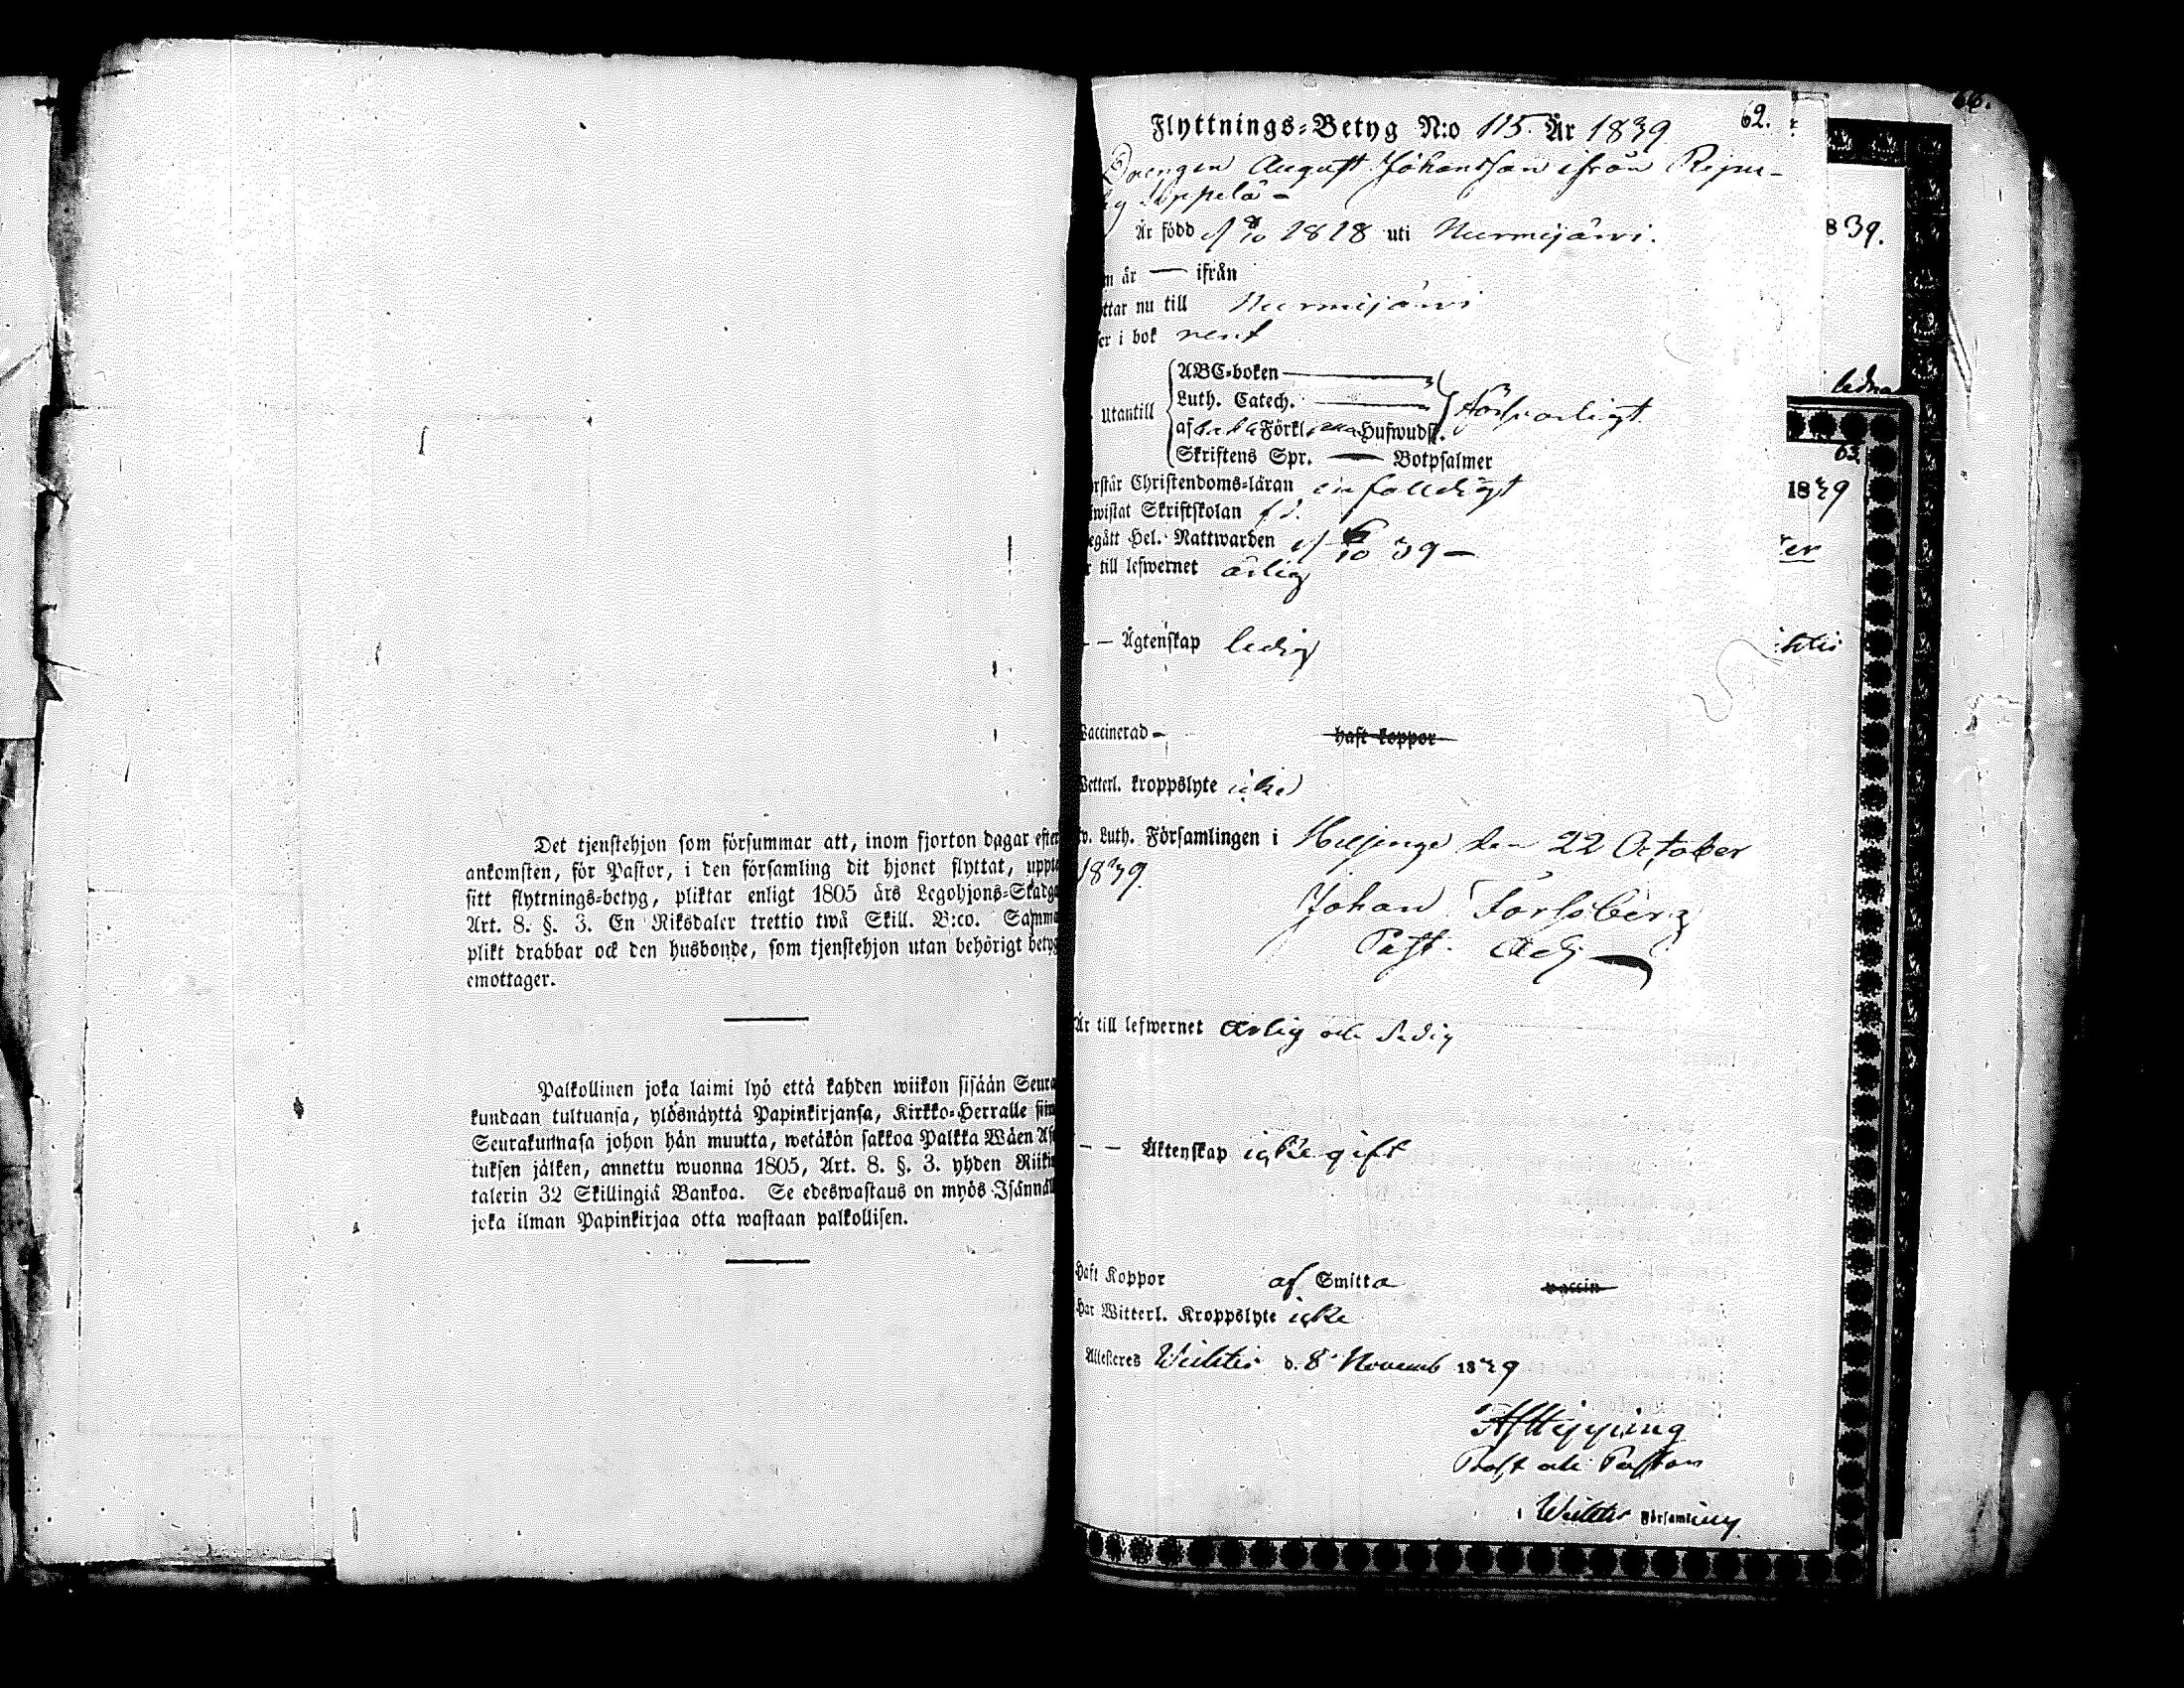 Det tjenstehjon som försummar att, inom fjorton dagar efter
ankomsten, för Pastor, i den församling dit hjonet flyttat, uppte
sitt flyttnings-betyg, pliktar enligt 1805 års Legohjons-Stadga
Art. 8. §. 3. En Riksdaler trettio twå Skill. B:co. Samma
plikt drabbar ock den husbonde, som tjenstehjon utan behörigt betyg
emottager.
Palkollinen joka laimi lyö että kahden wiikon sisään Seura
kundaan tultuansa, ylösnäyttä Papinkirjansa, Kirkko-Herralle siin
Seurakunnasa johon hän muutta, wetäkön sakkoa Palkka Wäen As
tuksen jälken, annettu wuonna 1805, Art. 8. §. 3. yhden Riikin
talerin 32 Skillingiä Bankoa. Se edeswastaus on myös Isännäll
joka ilman Papinkirjaa otta wastaan palkollisen.
62.
66.
Flyttnings-Betyg N:o 115. År 1839
Drengen August Johansson ifrån
Är född d 1818 uti Nurmijärwi.
839.
n är — ifrån
ttar nu till Nurmijärwi
er i bok rent
ABC-boken
ledna
Luth. Catech.
Utantill
försvarligt
af båda Förkl. Hufwudst.
Skriftens Spr. — Botpsalmer
63
rstår Christendoms-läran enfalldigt
1839
wistat Skriftskolan f.d.
egått Hel. Nattwarden d 6/10 39 —
r till lefwernet ärlig
— Ägtenskap ledig
Vaccinerad — haft koppor
Vetterl. kroppslyte icke
v. Luth. Församlingen i Helsinge den 22 October
1839.
Johan Forssberg
Past. Adj
Är till lefwernet ärlig och sedig
— — Äktenskap icke gift
Haft Koppor af Smitta vaccin
Har Witterl. Kroppslyte icke
Attesteres Wichtis d. 8 Novemb 1839
Prost och Pastor
i Wichtis Församling